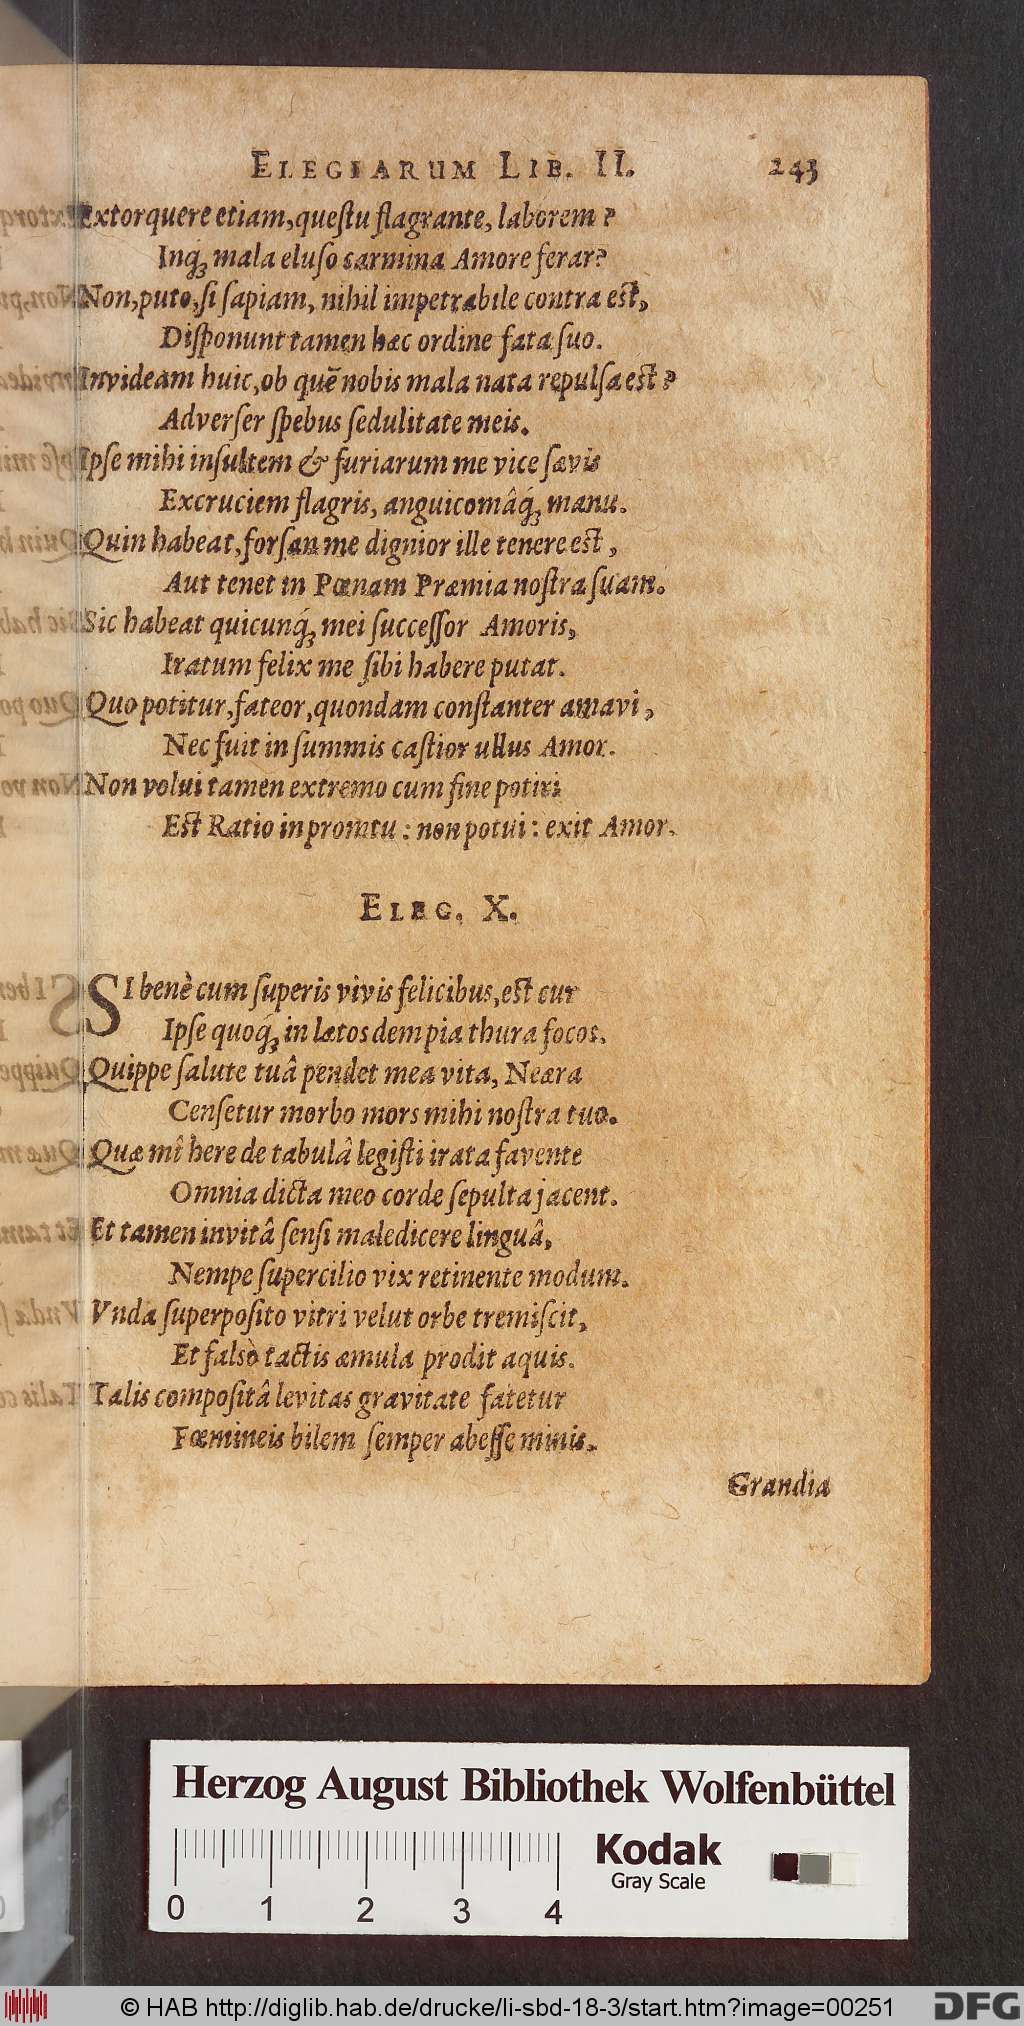 ELEGIARUM LIB. II. 243
Extorquere etiam, questu flagrante, laborem?
Inq́; mala eluso carmina Amore ferar?
Non, puto, si sapiam, nihil impetrabile contra est,
Disponunt tamen hæc ordine fata suo.
Invideam huic, ob quẽ nobis mala nata repulsa est?
Adverser spebus sedulitate meis.
Ipse mihi insultem & furiarum me vice sævis
Excruciem flagris, anguicomâq́; manu.
Quin habeat, forsan me dignior ille tenere est,
Aut tenet in Pœnam Præmia nostra suam.
Sic habeat quicunq́; mei successor Amoris,
Iratum felix me sibi habere putat.
Quo potitur, fateor, quondam constanter amavi,
Nec fuit in summis castior ullus Amor.
Non volui tamen extremo cum fine potiri
Est Ratio in promtu: non potui: exit Amor.
ELEG. X.
SI benè cum superis vivis felicibus, est cur
Ipse quoq́; in lætos dem pia thura focos.
Quippe salute tuâ pendet mea vita, Neæra
Censetur morbo mors mihi nostra tuo.
Quæ mî here de tabulâ legisti irata favente
Omnia dicta meo corde sepulta jacent.
Et tamen invitâ sensi maledicere linguâ,
Nempe supercilio vix retinente modum.
Vnda superposito vitri velut orbe tremiscit,
Et falsò tactis æmula prodit aquis.
Talis compositâ levitas gravitate fatetur
Fœmineis bilem semper abesse minis.
Grandia
Herzog August Bibliothek Wolfenbüttel
Kodak
Gray Scale
0 1 2 3 4
© HAB http://diglib.hab.de/drucke/li-sbd-18-3/start.htm?image=00251
DFG